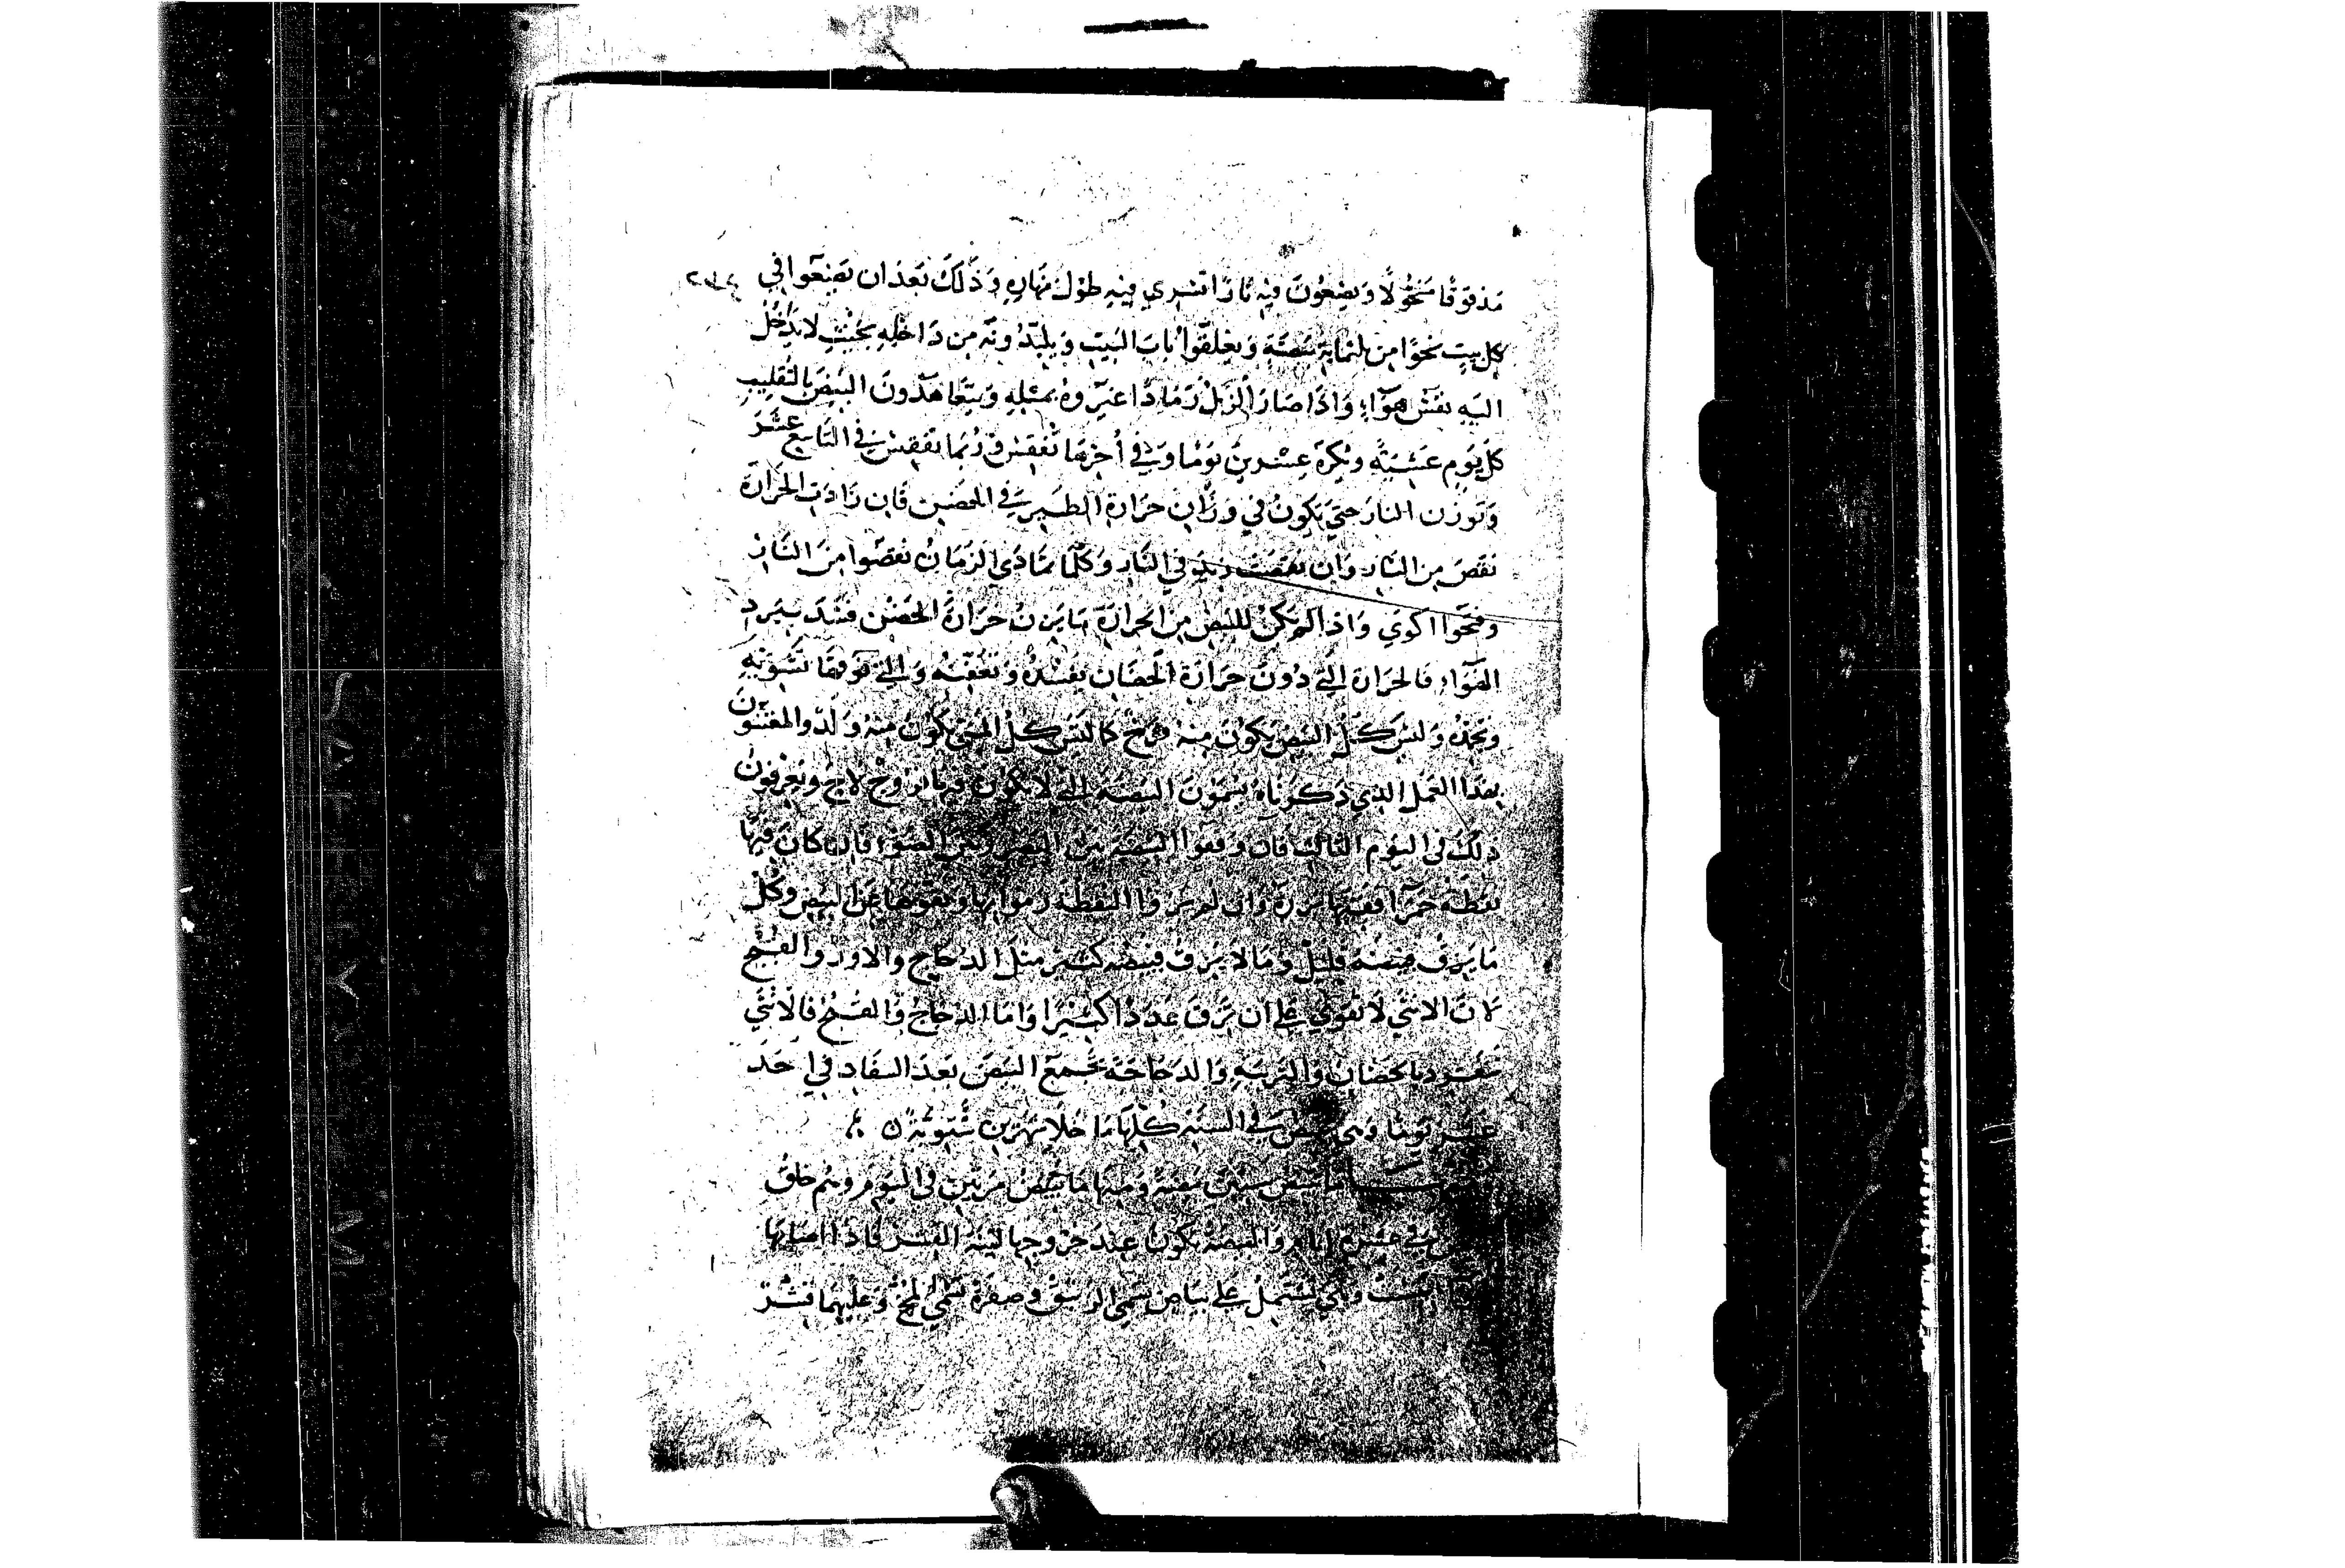 مَدقوقًا مَنخُولًا وَيَضِعُونَ فيْهِ نارًا تَسري فيْهِ طوْلَ نهَارِهِ وَذلكَ بَعدَ ان يَضِعوا في
كل بيتٍ نحوًا من ثلثماية بيضةٍ ويغلقوا بابَ البَيتِ وَيلبّدُونه من دَاخلِهِ بحَيْثُ لا يَدْخُل
اليَهِ نفَسْ هوَآءٍ وَاذَا صَارَ الزّبْل رَمَادًا غيّروهُ بمثلِهِ وَيتعَاهَدُونَ البَيضَ بالتَقليبِ
كلّ يَومٍ عَشيّةً وبُكرَةً عِشرينَ يَومًا وَفي أخِرِهَا تُفقِسْ وَرُبمَا تفقسْ في التَاسع عشَرَ
وَتوزَن النارَ حتيَ يَكونُ في وزَانِ حرَارةِ الطَيرِ في الحضنِ فان زادَتِ الحرَارَة
نقصَ من النَارِ وَان نقصَت زيدَ في النَارِ وَكلّما تمَادَي الزمَانُ نقصُوا مِنَ النَارِ
وفتحَوا اكوَي وَاذا لم يَكنْ للبَيْضِ مِنَ الحرَارَة مَا يَزِنُ حرَارَةَ الحَضْنِ فسَدَ ببَردِ
الهوَاءِ فالحرَارَة التي دُونَ حرَارَة الحضَانِ تفسدُهُ وتُعفّنُه وَالتي فوقهَا تشوّيْهِ
وتجمّدُهُ وَليْسَ كُلُّ البيض يَكونُ مِنهُ فرخٌ كما ليسَ كلّ المَني يَكونُ مِنْهُ وَلَدٌ والمعْتنوُن
بهَذا العَمل الذِي ذكرنَاهُ يُسمُونَ البيضَة التي لا يكونُ فيها فرّوجٌ لاح وَيَعرفونَ
ذلكَ في اليوم الثالث فان وقفوا البَيضَة بَينَ البصَر وبَينَ الضوء فان كانَ فيْهَا
نقطة حَمرَآ ففيهَا بزرَةٌ وَان لم يَرَوا النقطة رمَوا بهَا ونقوهَا عَن البيض وكُل
مَا يَزق فبَيضُهُ قليْلٌ وَمَا لا يَزقُ فبَيضُهُ كثيرٌ مثلَ الدَجَاج وَالاوز والقَبْج
لانَّ الانثَي لا تقوَي على ان تَزقَّ عَدَدًا كَثيْرًا وَامَا الدَجَاجُ وَالقَبْجُ فَالانثَي
تنفرد بالحضَانِ وَالتربيَة وَالدجَاجَة تجمَع البَيضَ بَعدَ السِفَادِ في احَدَ
عَشر يَومًا وَهي تبيض في السَنَة كلهَا مَا خلا شهرَينِ شتَويّة
مَا تبيضُ بيضَتين وَمنهَا مَا تبيضُ مرّتَين في اليَوم وَيتم خلق
في عشرَة ايامٍ وَالبيضَة تكونُ عندَ خروجهَا لينَة القشر فاذا اصَابهَا
يبسَت وَهي تشتملُ على بيَاضٍ يُسمي الرَقيق وَصفرَة تُسَمي المح وعَليهمَا قشرٌ